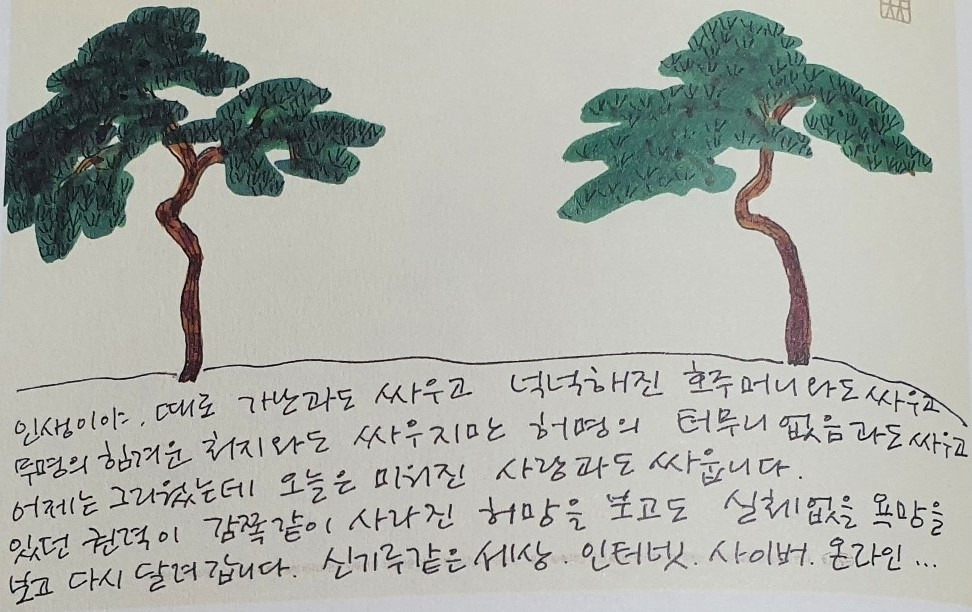 인생이야. 때로 가난과도 싸우고 넉넉해진 호주머니와도 싸우고
무명의 힘겨운 처지와도 싸우지만 허명의 터무니 없음과도 싸우고
어제는 그리웠는데 오늘은 미워진 사랑과도 싸웁니다.
있던 권력이 감쪽같이 사라진 허망을 보고도 실체없을 욕망을
보고 다시 달려 갑니다. 신기루같은 세상. 인터넷. 사이버. 온라인...